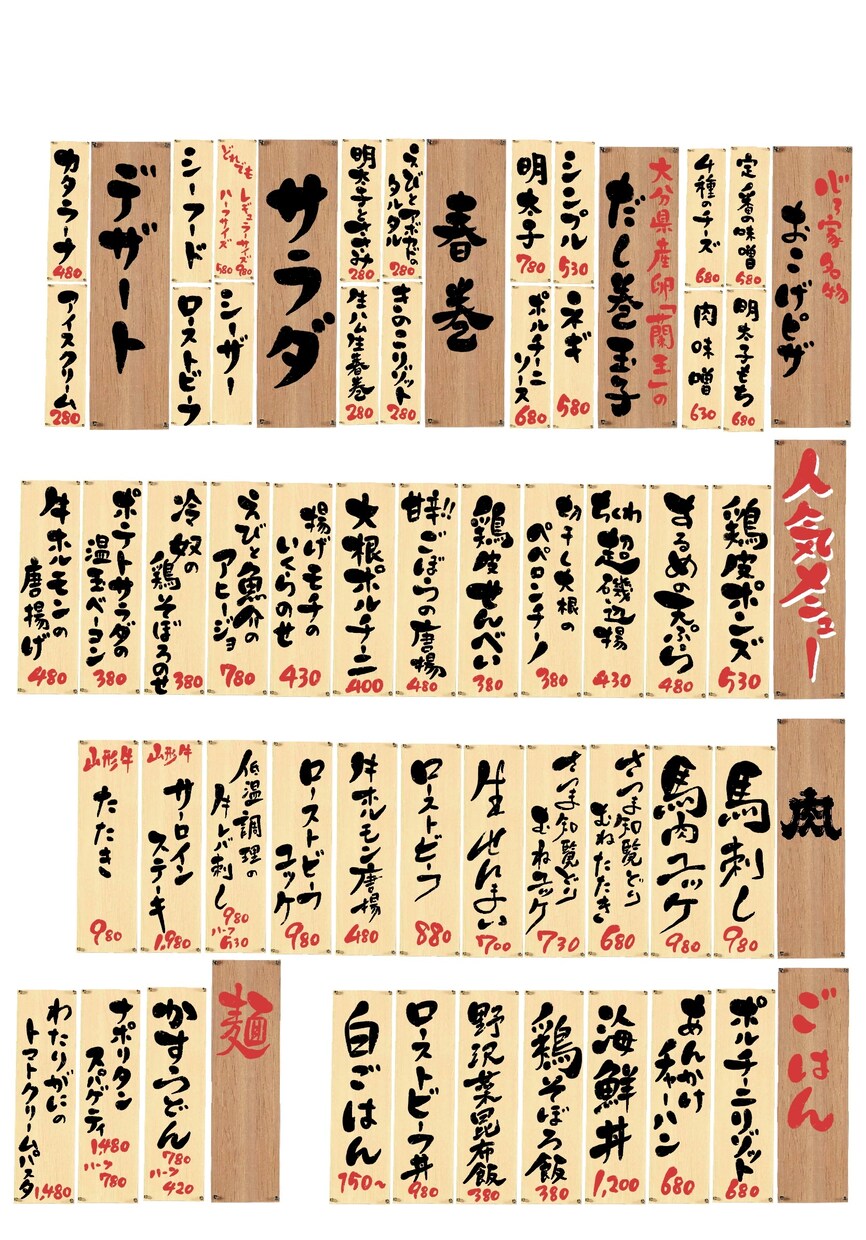 心々家名物
おこげピザ
定番の味噌
580
明太子もち
680
4種のチーズ
680
肉味噌
630
大分県産卵「蘭王」の
だし巻玉子
シンプル
530
ネギ
580
明太子
780
ポルチーニ
ソース
680
春巻
えびとアボカドの
タルタル
280
きのこリゾット
280
明太子とささみ
280
生ハム生春巻
280
サラダ
どれでも
レギュラーサイズ
980
ハーフサイズ
580
シーザー
シーフード
ローストビーフ
デザート
カタラーナ
480
アイスクリーム
280
人気メニュー
鶏皮ポンズ
530
するめの天ぷら
480
ちくわ
超磯辺揚
430
切干し大根の
ペペロンチーノ
380
鶏皮せんべい
380
甘辛!!
ごぼうの唐揚
480
大根ポルチーニ
400
揚げモチの
いくらのせ
430
えびと魚介の
アヒージョ
780
冷奴の
鶏そぼろのせ
380
ポテトサラダの
温玉ベーコン
380
牛ホルモンの
唐揚げ
480
肉
馬刺し
980
馬肉ユッケ
980
さつま知覧どり
むねたたき
680
さつま知覧どり
むねユッケ
730
生せんまい
700
ローストビーフ
880
牛ホルモン唐揚
480
ローストビーフ
ユッケ
980
低温調理の
牛レバ刺し
980
ハーフ
530
山形牛
サーロイン
ステーキ
1,980
山形牛
たたき
980
ごはん
ポルチーニリゾット
680
あんかけ
チャーハン
680
海鮮丼
1,200
鶏そぼろ飯
380
野沢菜昆布飯
380
ローストビーフ丼
980
白ごはん
150~
麺
かすうどん
780
ハーフ
420
ナポリタン
スパゲティ
1,480
ハーフ
780
わたりがにの
トマトクリームパスタ
1,480